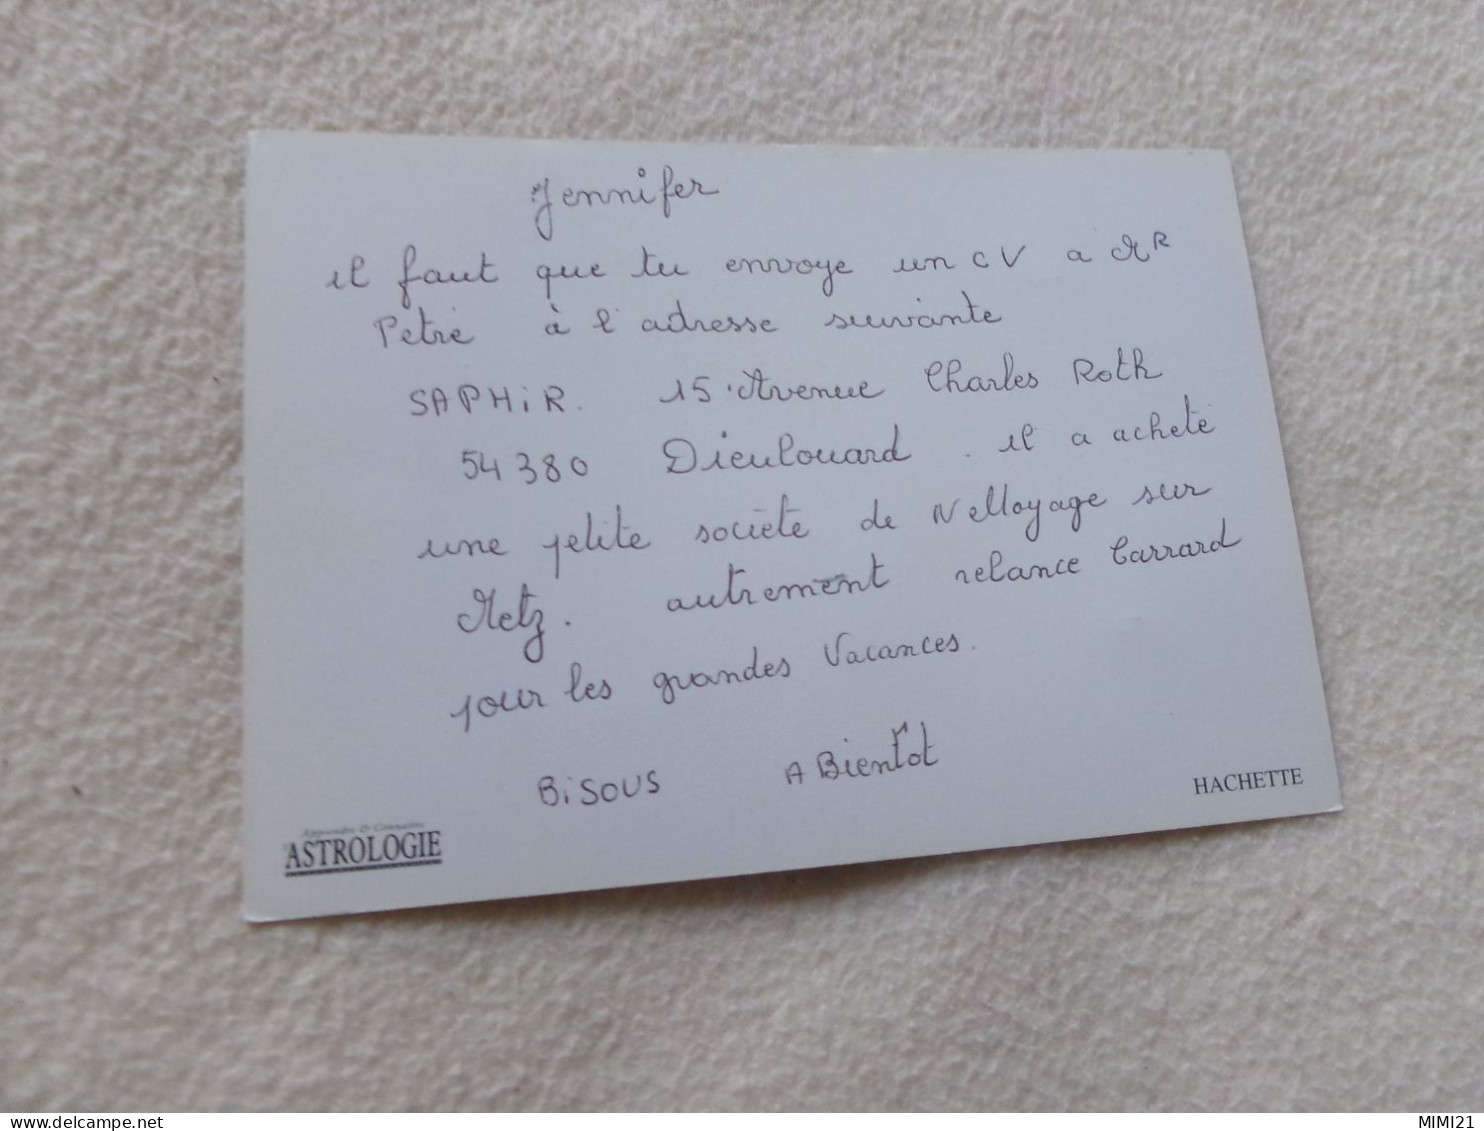 Jennifer
il faut que tu envoye un CV a MR
Petre à l'adresse suivante
SAPHIR. 15 Avenue Charles Roth
54380 Dieulouard. il a acheté
une petite société de Nettoyage sur
Metz. autrement relance Carrard
pour les grandes Vacances.
BISOUS A Bientôt
Apprendre & Connaître
ASTROLOGIE
HACHETTE
delcampe.net
MIMI21